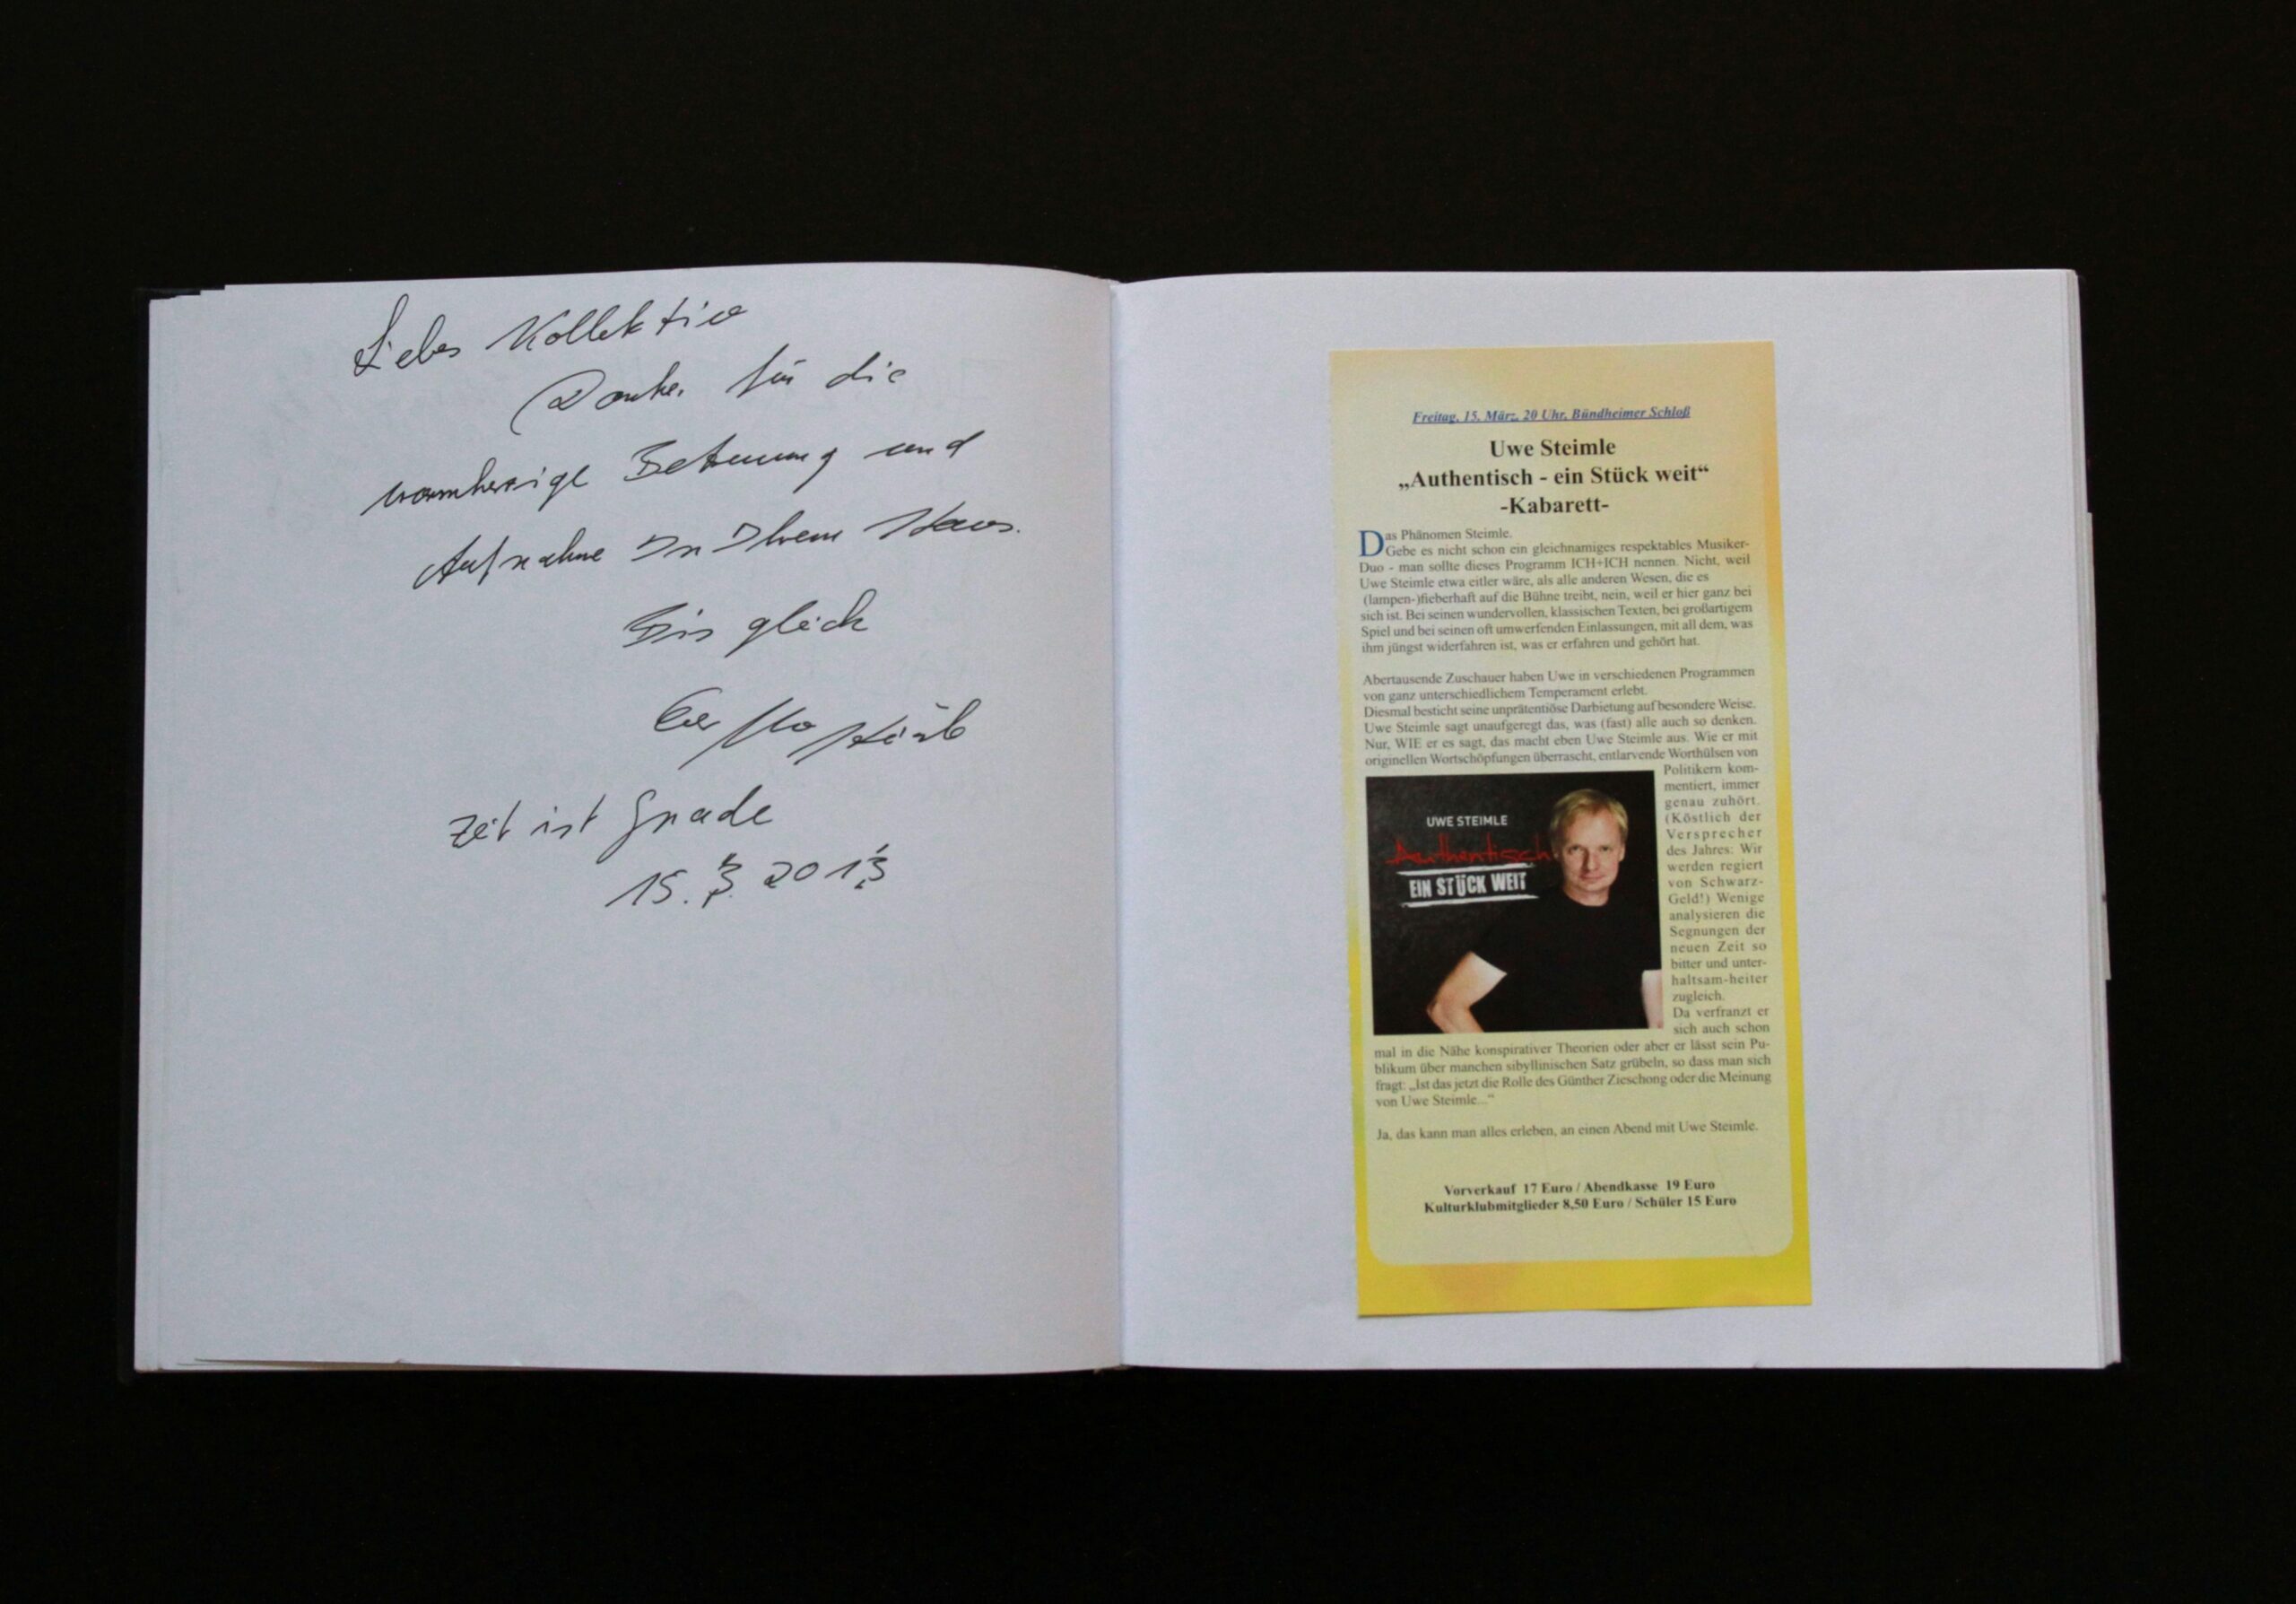 Liebes Kollektiv
Danke. für die
warmherzige Betreuung und
Aufnahme In Ihrem Haus.
Bis gleich
Zeit ist Gnade
15. 3. 2013
Freitag, 15. März, 20 Uhr, Bündheimer Schloß
Uwe Steimle
„Authentisch - ein Stück weit“
-Kabarett-
Das Phänomen Steimle.
Gebe es nicht schon ein gleichnamiges respektables Musiker-
Duo - man sollte dieses Programm ICH+ICH nennen. Nicht, weil
Uwe Steimle etwa eitler wäre, als alle anderen Wesen, die es
(lampen-)fieberhaft auf die Bühne treibt, nein, weil er hier ganz bei
sich ist. Bei seinen wundervollen, klassischen Texten, bei großartigem
Spiel und bei seinen oft umwerfenden Einlassungen, mit all dem, was
ihm jüngst widerfahren ist, was er erfahren und gehört hat.
Abertausende Zuschauer haben Uwe in verschiedenen Programmen
von ganz unterschiedlichem Temperament erlebt.
Diesmal besticht seine unprätentiöse Darbietung auf besondere Weise.
Uwe Steimle sagt unaufgeregt das, was (fast) alle auch so denken.
Nur, WIE er es sagt, das macht eben Uwe Steimle aus. Wie er mit
originellen Wortschöpfungen überrascht, entlarvende Worthülsen von
Politikern kom-
mentiert, immer
genau zuhört.
(Köstlich der
Versprecher
des Jahres: Wir
werden regiert
von Schwarz-
Geld!) Wenige
analysieren die
Segnungen der
neuen Zeit so
bitter und unter-
haltsam-heiter
zugleich.
Da verfranzt er
sich auch schon
UWE STEIMLE
Authentisch
EIN STÜCK WEIT
mal in die Nähe konspirativer Theorien oder aber er lässt sein Pu-
blikum über manchen sibyllinischen Satz grübeln, so dass man sich
fragt: „Ist das jetzt die Rolle des Günther Zieschong oder die Meinung
von Uwe Steimle...“
Ja, das kann man alles erleben, an einen Abend mit Uwe Steimle.
Vorverkauf 17 Euro / Abendkasse 19 Euro
Kulturklubmitglieder 8,50 Euro / Schüler 15 Euro